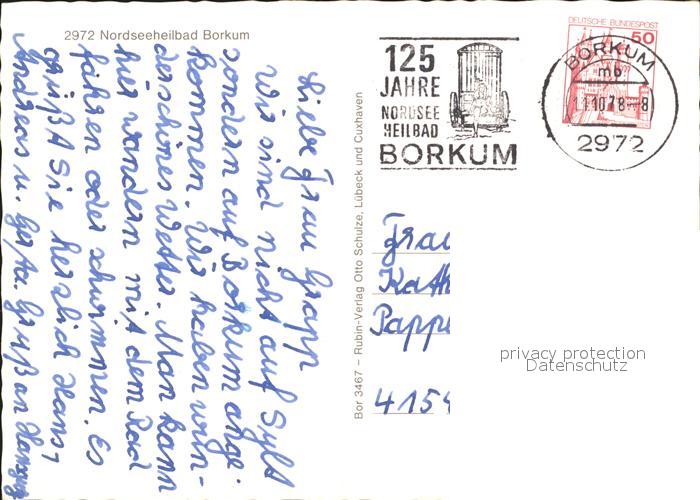 2972 Nordseeheilbad Borkum
Liebe Frau Grapp
Wir sind nicht auf Sylt
sondern auf Borkum ange-
kommen. Wir haben wun-
derschönes Wetter. Man kann
hir wandern mit dem Rad
fahren oder schwimmen. Es
grüßt Sie herslich Hans,
Andreas u. Gruß an
Bor 3467 – Rubin-Verlag Otto Schulze, Lübeck und Cuxhaven
125
JAHRE
NORDSEE
HEILBAD
BORKUM
DEUTSCHE BUNDESPOST
50
BORKUM
mb
11.10.78-8
2972
Frau
Kath
Papp
4154
privacy protection
Datenschutz